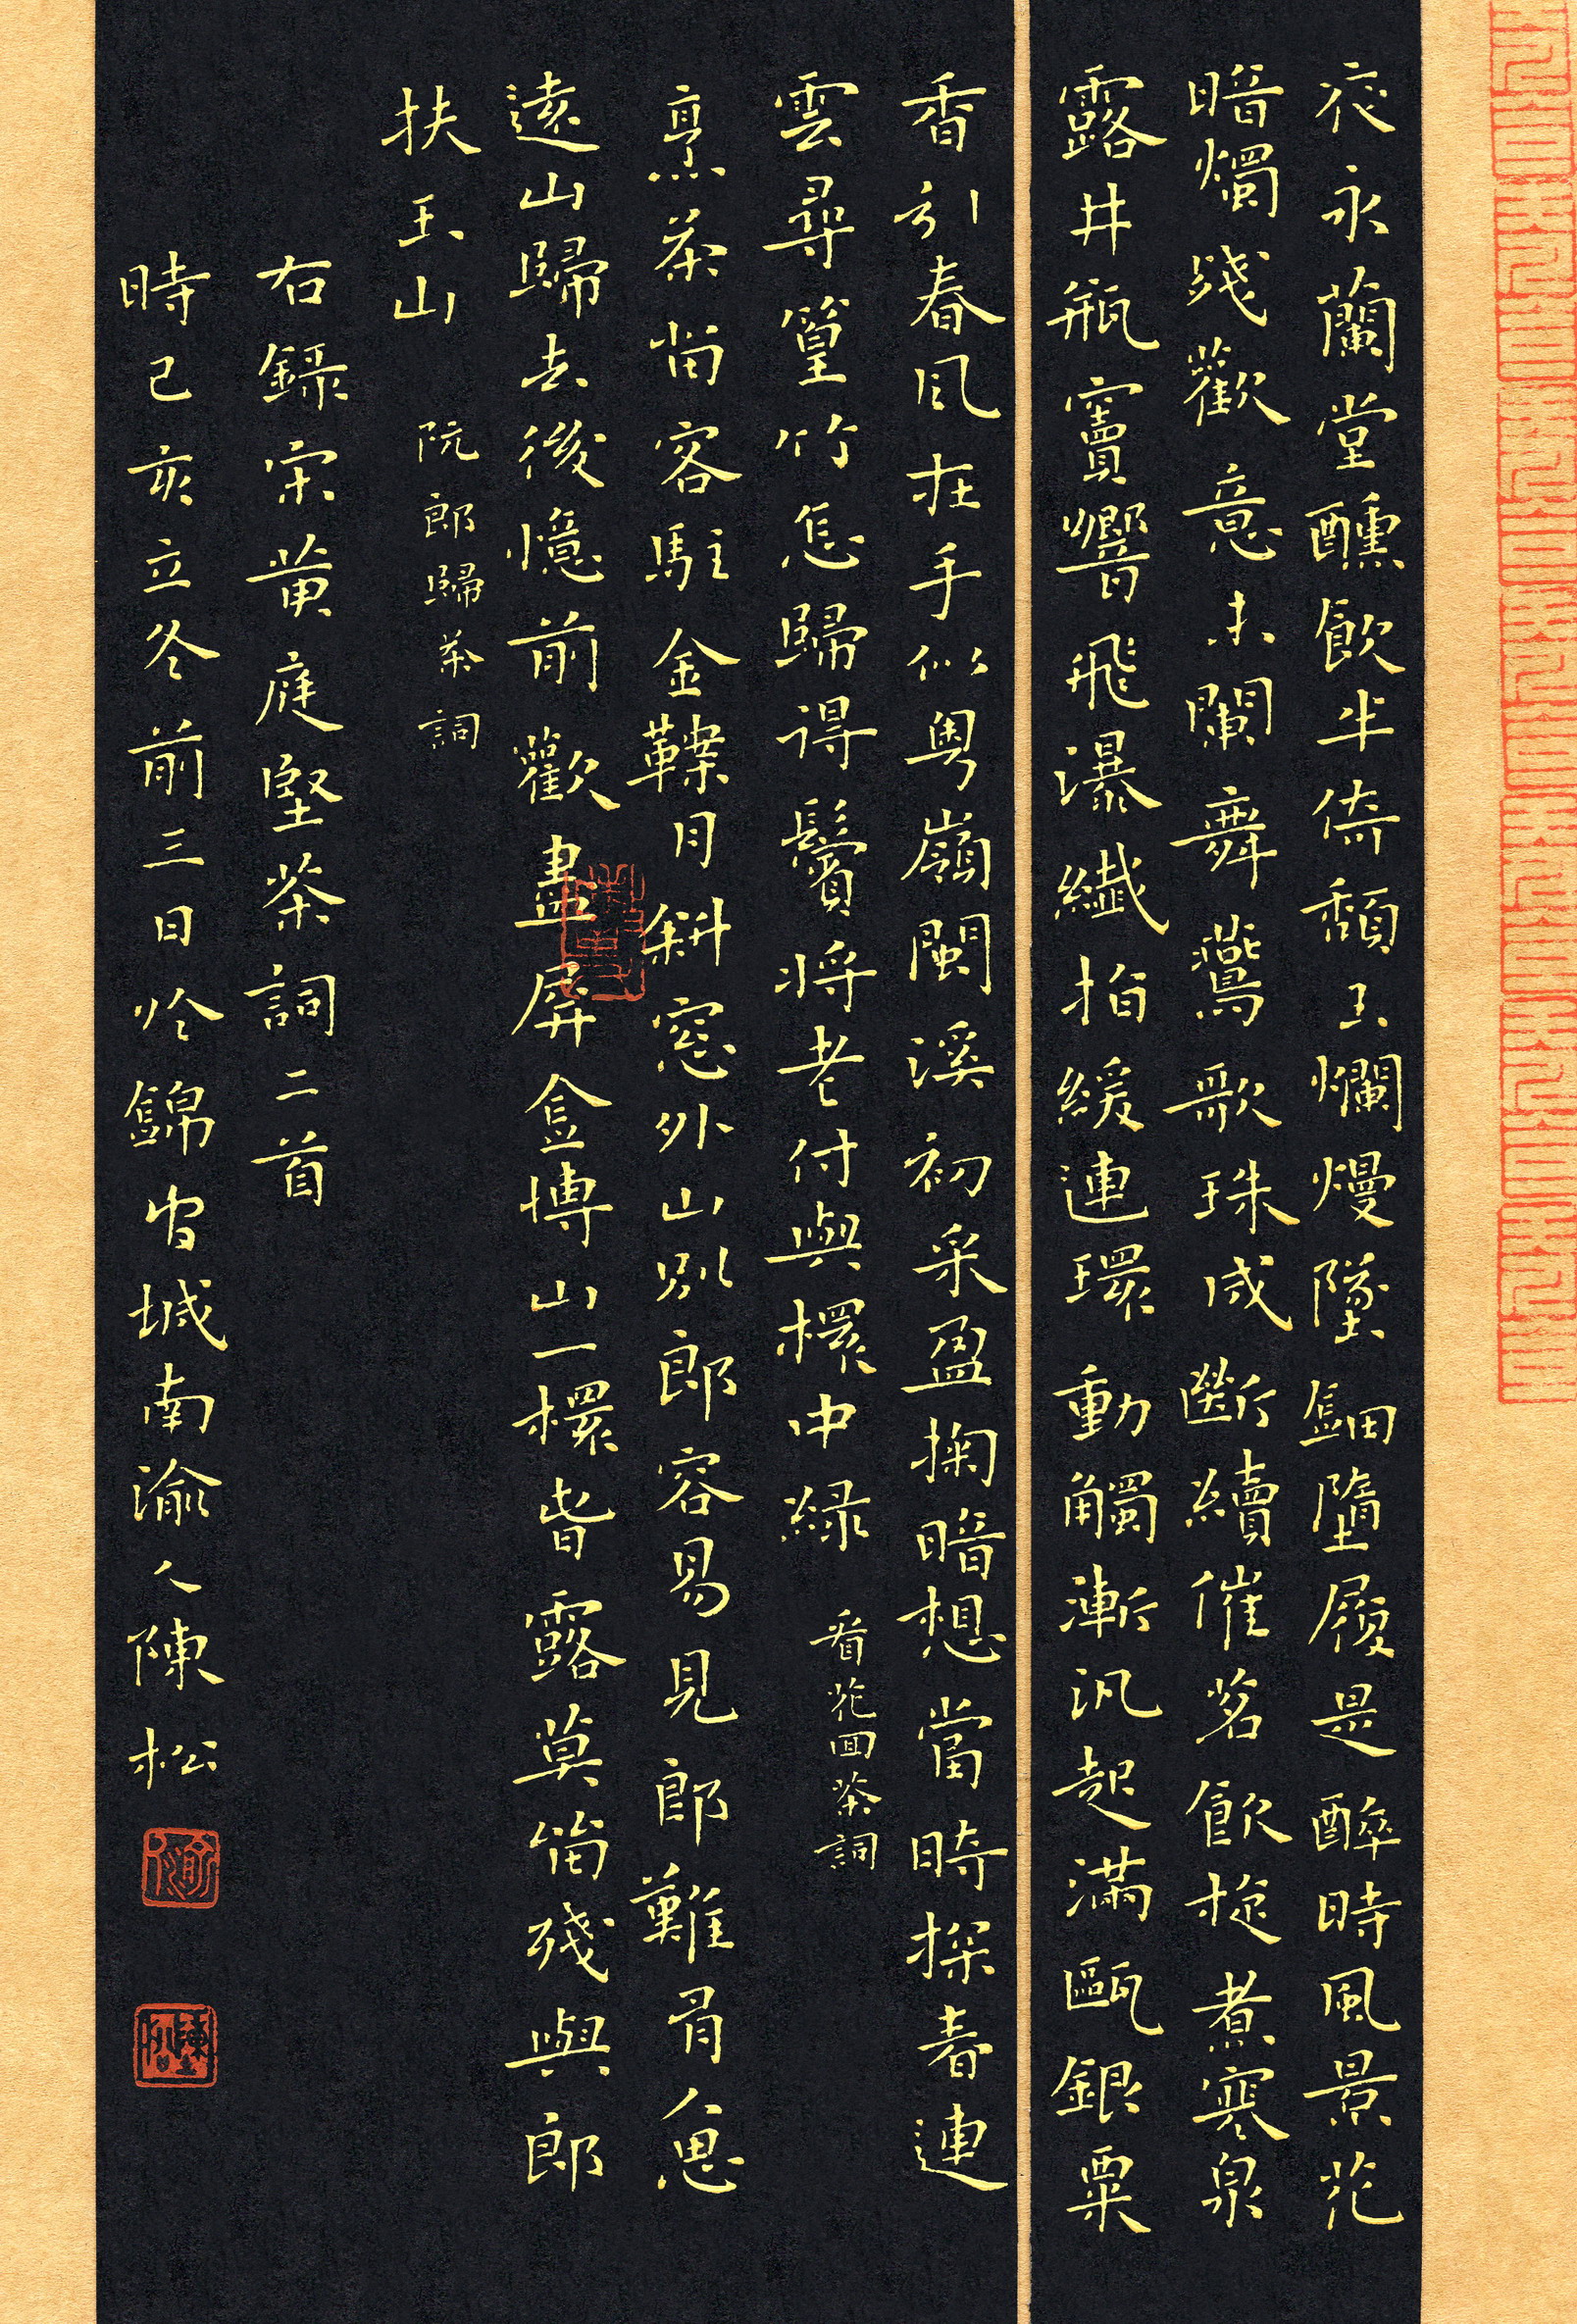 夜永蘭堂醺飲半倚頽玉爛熳墜鈿墮履是醉時風景花
暗燭殘歡意未闌舞燕歌珠成斷續催茗飲旋煮寒泉
露井瓶竇響飛瀑纖指緩連環動觸漸汎起滿甌銀粟
香引春風在手似粤嶺閩溪初采盈掬暗想當時探春連
雲尋篁竹怎歸得鬢將老付與櫰中緑 看花回茶詞
烹茶留客駐金鞍月斜窓外山別郎容易見郎難有人思
遠山歸去後憶前歡畫屏金博山一櫰春露莫留殘與郎
扶玉山 阮郎歸茶詞
右錄宋黄庭堅茶詞二首
時己亥立冬前三日於錦官城南渝人陳松